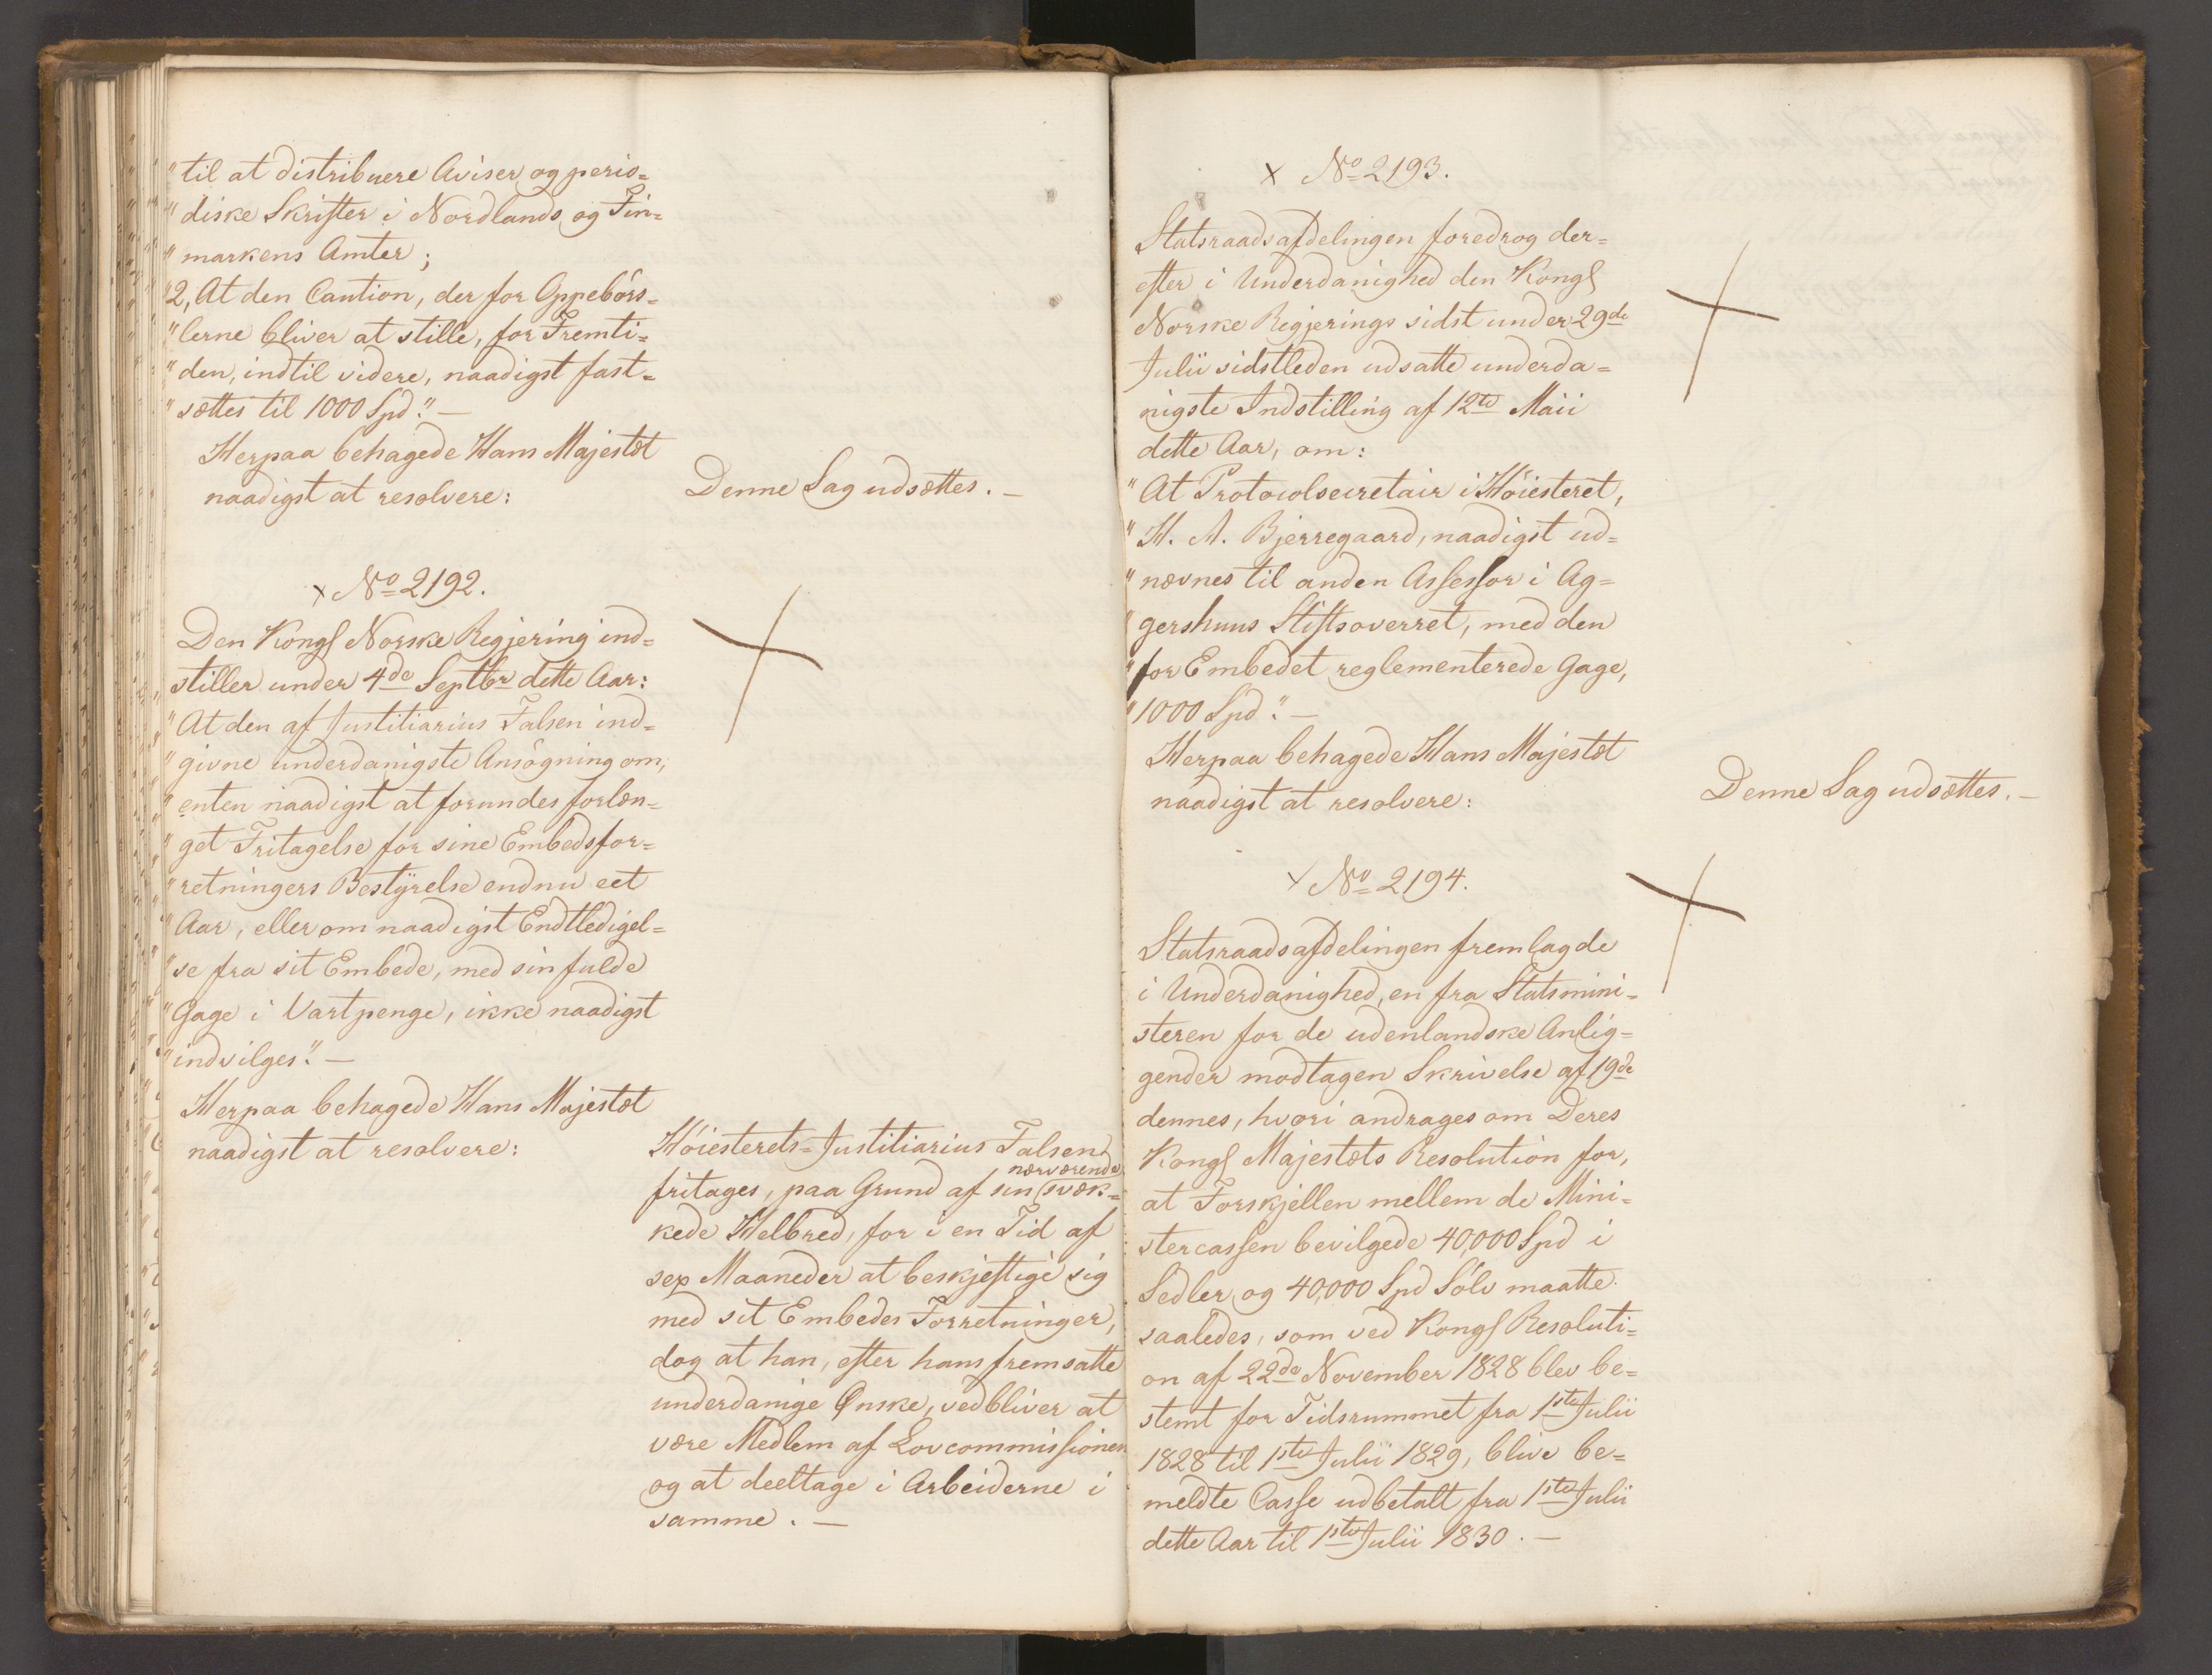 "til at distribuere Aviser og perio=
"diske Skrifter i Nordlands og Fin=
"markens Amter;
"2, At den Caution, der for Oppebörs=
"lerne bliver at stille, for Fremti=
"den, indtil videre, naadigst fast=
"sættes til 1000 Spd." —
Herpaa behagede Hans Majestæt
naadigst at resolvere:
Denne Sag udsættes. —
x No 2192.
Den Kongl Norske Regjering ind=
stiller under 4de Septbr dette Aar:
"At den af Justitiarius Falsen ind=
"givne underdanigste Ansögning om,
"enten naadigst at forundes forlæn=
"get Fritagelse for sine Embedsfor=
"retningers Bestÿrelse endnu eet
"Aar, eller om naadigst Endtledigel=
"se fra sit Embede, med sin fulde
"Gage i Vartpenge, ikke naadigst
"indvilges". —
Herpaa behagede Hans Majestæt
naadigst at resolvere:
Höiesterets=Justitiarius Falsen
nærværende
fritages, paa Grund af sin svæk=
kede Helbred, for i en Tid af
sex Maaneder at beskjeftige sig
med sit Embedes Forretninger,
dog at han, efter hans fremsatte
underdanige Ønske, vedbliver at
være Medlem af Lovcommissionen
og at deeltage i Arbeiderne i
samme. —
x No 2193.
Statsraadsafdelingen foredrog der=
efter i Underdanighed den Kongl
Norske Regjerings sidst under 29de
Julii sidstleden udsatte underda=
nigste Indstilling af 12te Maii
dette Aar, om:
"At Protocolsecretair i Höiesteret,
"H. A. Bjerregaard, naadigst ud=
"nævnes til anden Assessor i Ag=
"gershuus Stiftsoverret, med den
"for Embedet reglementerede Gage,
"1000 Spd". —
Herpaa behagede Hans Majestæt
naadigst at resolvere:
Denne Sag udsættes. —
x No 2194.
Statsraadsafdelingen fremlagde
i Underdanighed, en fra Statsmini=
steren for de udenlandske Anlig=
gender modtagen Skrivelse af 19de
dennes, hvori andrages om Deres
Kongl Majestæts Resolution for,
at Forskjellen mellem de Mini=
stercassen bevilgede 40,000 Spd i
Sedler og 40,000 Spd Sölv maatte
saaledes, som ved Kongl Resoluti=
on af 22de November 1828 blev be=
stemt for Tidsrummet fra 1ste Julii
1828 til 1ste Julii 1829, blive be=
meldte Casse udbetalt fra 1ste Julii
dette Aar til 1ste Julii 1830. —